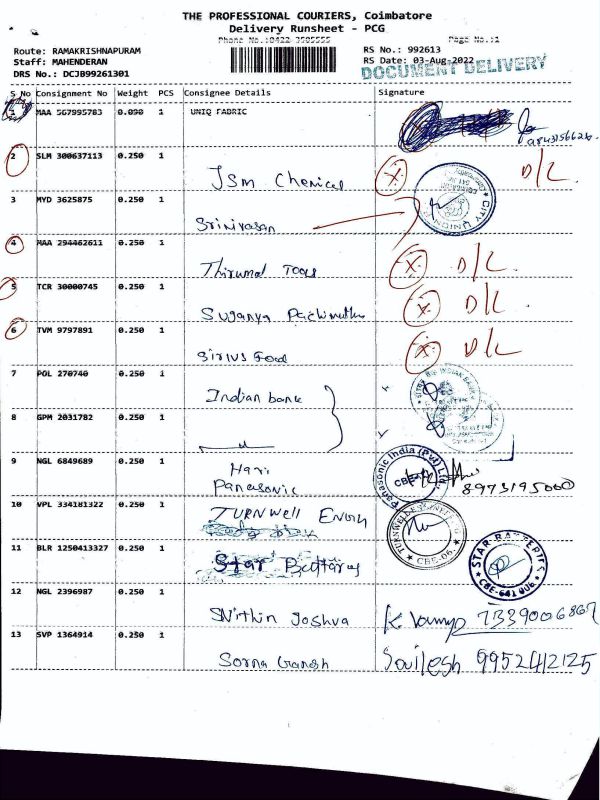 THE PROFESSIONAL COURIERS, Coimbatore
Delivery Runsheet - PCG
Phone No.:0422 3505555 Page No.:1
Route: RAMAKRISHNAPURAM RS No.: 992613
Staff: MAHENDERAN RS Date: 03-Aug-2022
DRS No.: DCJB99261301 DOCUMENT DELIVERY
S No Consignment No Weight PCS Consignee Details Signature
1 MAA 567995783 0.090 1 UNIQ FABRIC
2 SLM 300637113 0.250 1 JSM Chemical X D/L
CITY UNION
3 MYD 3625875 0.250 1 Srinivasan
4 MAA 294462611 0.250 1 Thirumal Tools X D/L
5 TCR 30000745 0.250 1 Suganya X D/L
6 TVM 9797891 0.250 1 Sirius Food X D/L
7 POL 270740 0.250 1 Indian bank
INDIAN BANK
8 GPM 2031782 0.250 1
9 NGL 6849689 0.250 1 Hari
Panasonic 8973195000
Panasonic India (Pvt) Ltd
CBE
10 VPL 334181322 0.250 1 TURNWELL
CBE-06.
11 BLR 1250413327 0.250 1 Star
STAR BATTERIES
CBE-641 006
12 NGL 2396987 0.250 1 Nithin Joshva 7339006867
13 SVP 1364914 0.250 1 Sorna Ganesh Sailesh 9952412125